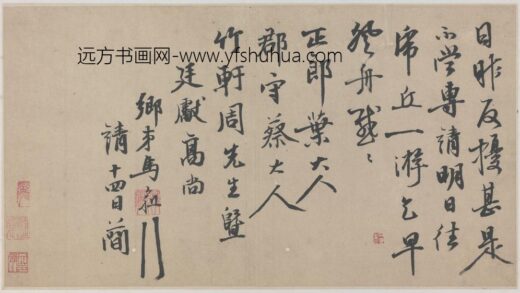 日昨反擾甚是
不當專請明日往
虎丘一游乞早
登舟感〻
正郎葉大人
郡守蔡大人
竹軒周先生暨
廷獻高尚
鄉末馬愈
請 十四日簡
远方书画网-www.yfshuhua.com